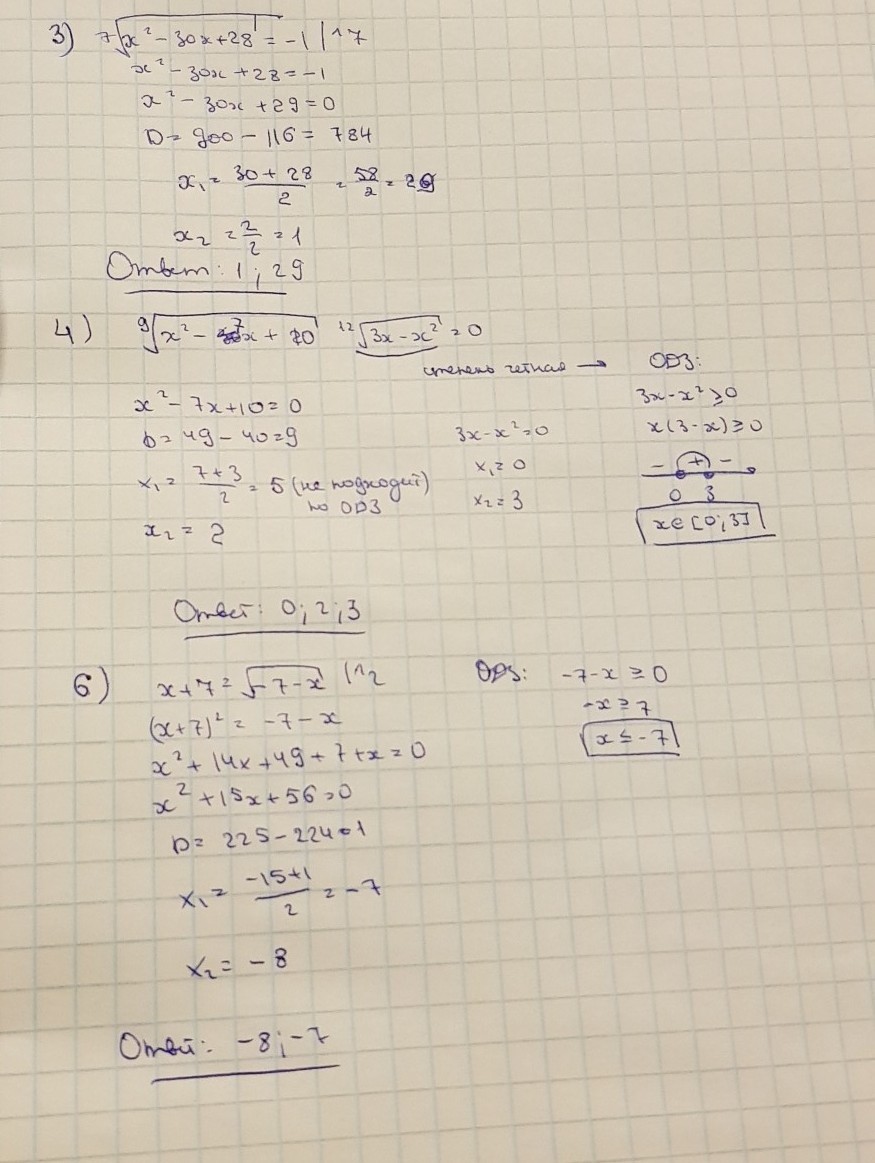 3) ⁷√(x² - 30x + 28) = -1 | ^7
x² - 30x + 28 = -1
x² - 30x + 29 = 0
D = 900 - 116 = 784
x₁ = (30 + 28)/2 = 58/2 = 29
x₂ = 2/2 = 1
Ответ: 1; 29
4) ⁹√(x² - 7x + 10) ¹²√(3x - x²) = 0
степень четная → ОДЗ:
x² - 7x + 10 = 0
D = 49 - 40 = 9
x₁ = (7 + 3)/2 = 5 (не подходит
по ОДЗ)
x₂ = 2
3x - x² = 0
x₁ = 0
x₂ = 3
3x - x² ≥ 0
x(3 - x) ≥ 0
- + -
0 3
x ∈ [0; 3]
Ответ: 0; 2; 3
6) x + 7 = √(-7 - x) | ^2
(x + 7)² = -7 - x
x² + 14x + 49 + 7 + x = 0
x² + 15x + 56 = 0
D = 225 - 224 = 1
x₁ = (-15 + 1)/2 = -7
x₂ = -8
ОДЗ: -7 - x ≥ 0
-x ≥ 7
x ≤ -7
Ответ: -8; -7